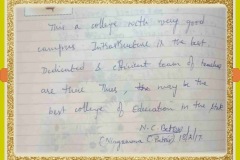 This a college with very good
campus Infrastructure is the best
Dedicated & efficient team of teachers
are there Thus, the way be the
best college of Education in the
N.C